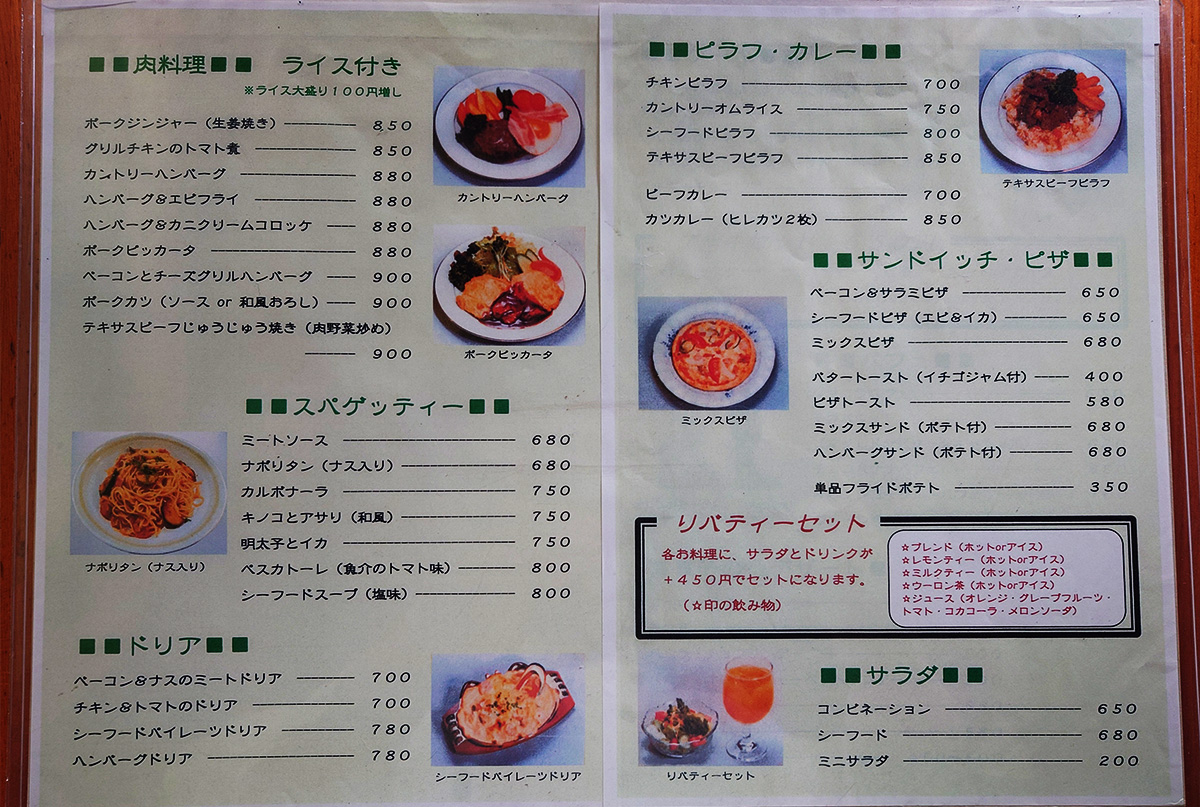 ■■肉料理■■ ライス付き
※ライス大盛り100円増し
ポークジンジャー（生姜焼き） 850
グリルチキンのトマト煮 850
カントリーハンバーグ 880
ハンバーグ&エビフライ 880
ハンバーグ&カニクリームコロッケ 880
ポークピッカータ 880
ベーコンとチーズグリルハンバーグ 900
ポークカツ（ソース or 和風おろし） 900
テキサスビーフじゅうじゅう焼き（肉野菜炒め）
900
カントリーハンバーグ
ポークピッカータ
■■スパゲッティー■■
ミートソース 680
ナポリタン（ナス入り） 680
カルボナーラ 750
キノコとアサリ（和風） 750
明太子とイカ 750
ペスカトーレ（魚介のトマト味） 800
シーフードスープ（塩味） 800
ナポリタン（ナス入り）
■■ドリア■■
ベーコン&ナスのミートドリア 700
チキン&トマトのドリア 700
シーフードパイレーツドリア 780
ハンバーグドリア 780
シーフードパイレーツドリア
■■ピラフ・カレー■■
チキンピラフ 700
カントリーオムライス 750
シーフードピラフ 800
テキサスビーフピラフ 850
ビーフカレー 700
カツカレー（ヒレカツ2枚） 850
テキサスビーフピラフ
■■サンドイッチ・ピザ■■
ベーコン&サラミピザ 650
シーフードピザ（エビ&イカ） 650
ミックスピザ 680
バタートースト（イチゴジャム付） 400
ピザトースト 580
ミックスサンド（ポテト付） 680
ハンバーグサンド（ポテト付） 680
単品フライドポテト 350
ミックスピザ
リバティーセット
各お料理に、サラダとドリンクが
+450円でセットになります。
（☆印の飲み物）
☆ブレンド（ホットorアイス）
☆レモンティー（ホットorアイス）
☆ミルクティー（ホットorアイス）
☆ウーロン茶（ホットorアイス）
☆ジュース（オレンジ・グレープフルーツ・
トマト・コカコーラ・メロンソーダ）
■■サラダ■■
コンビネーション 650
シーフード 680
ミニサラダ 200
リバティーセット